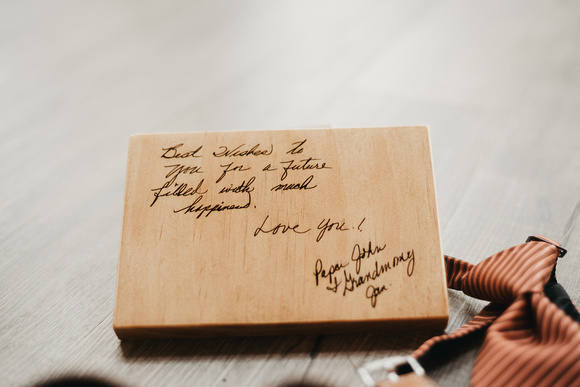 Best Wishes to
you for a future
filled with much
happiness.
Love You!
Papa John
& Grandmomy
Jan.